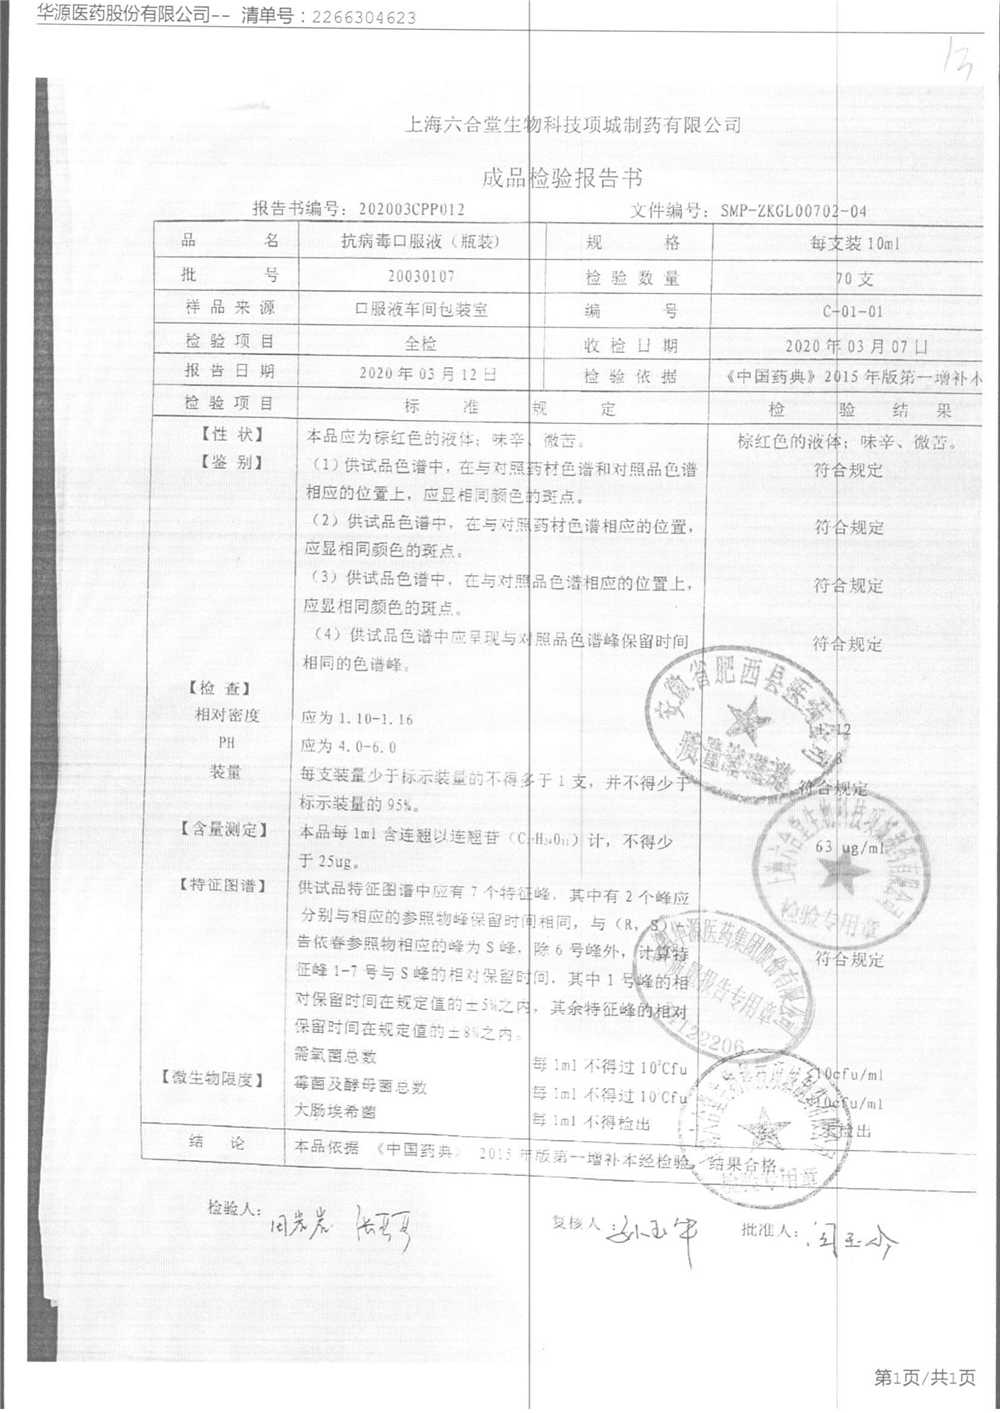 华源医药股份有限公司-- 清单号：2266304623
13
上海六合堂生物科技项城制药有限公司
成品检验报告书
报告书编号：202003CPP012 文件编号：SMP-ZKGL00702-04
品 名 抗病毒口服液（瓶装） 规 格 每支装 10ml
批 号 20030107 检 验 数 量 70 支
样 品 来 源 口服液车间包装室 编 号 C-01-01
检 验 项 目 全检 收 检 日 期 2020 年 03 月 07 日
报 告 日 期 2020 年 03 月 12 日 检 验 依 据 《中国药典》2015 年版第一增补本
检 验 项 目 标 准 规 定 检 验 结 果
【性 状】 本品应为棕红色的液体；味辛、微苦。 棕红色的液体；味辛、微苦。
【鉴 别】 （1）供试品色谱中，在与对照药材色谱和对照品色谱 符合规定
相应的位置上，应显相同颜色的斑点。
（2）供试品色谱中，在与对照药材色谱相应的位置， 符合规定
应显相同颜色的斑点。
（3）供试品色谱中，在与对照品色谱相应的位置上， 符合规定
应显相同颜色的斑点。
（4）供试品色谱中应呈现与对照品色谱峰保留时间 符合规定
相同的色谱峰。
【检 查】
相对密度 应为 1.10-1.16 1.12
PH 应为 4.0-6.0
装量 每支装量少于标示装量的不得多于 1 支，并不得少于 符合规定
标示装量的 95%。
【含量测定】 本品每 1ml 含连翘以连翘苷 计，不得少 63 ug/ml
于 25ug。
【特征图谱】 供试品特征图谱中应有 7 个特征峰，其中有 2 个峰应
分别与相应的参照物峰保留时间相同，与（R，S）-
告依春参照物相应的峰为 S 峰，除 6 号峰外，计算特 符合规定
征峰 1-7 号与 S 峰的相对保留时间，其中 1 号峰的相
对保留时间在规定值的±5%之内，其余特征峰的相对
保留时间在规定值的±8%之内。
需氧菌总数 每 1ml 不得过 10²Cfu 10cfu/ml
【微生物限度】 霉菌及酵母菌总数 每 1ml 不得过 10¹Cfu 10cfu/ml
大肠埃希菌 每 1ml 不得检出 未检出
结 论 本品依据 《中国药典》 2015 年版第一增补本经检验，结果合格。
安徽省肥西县医药公司
质量管理
上海六合堂生物科技项城制药有限公司
检验专用章
华源医药集团股份有限公司
报告专用章
122206
检验人： 复核人： 批准人：
第1页/共1页